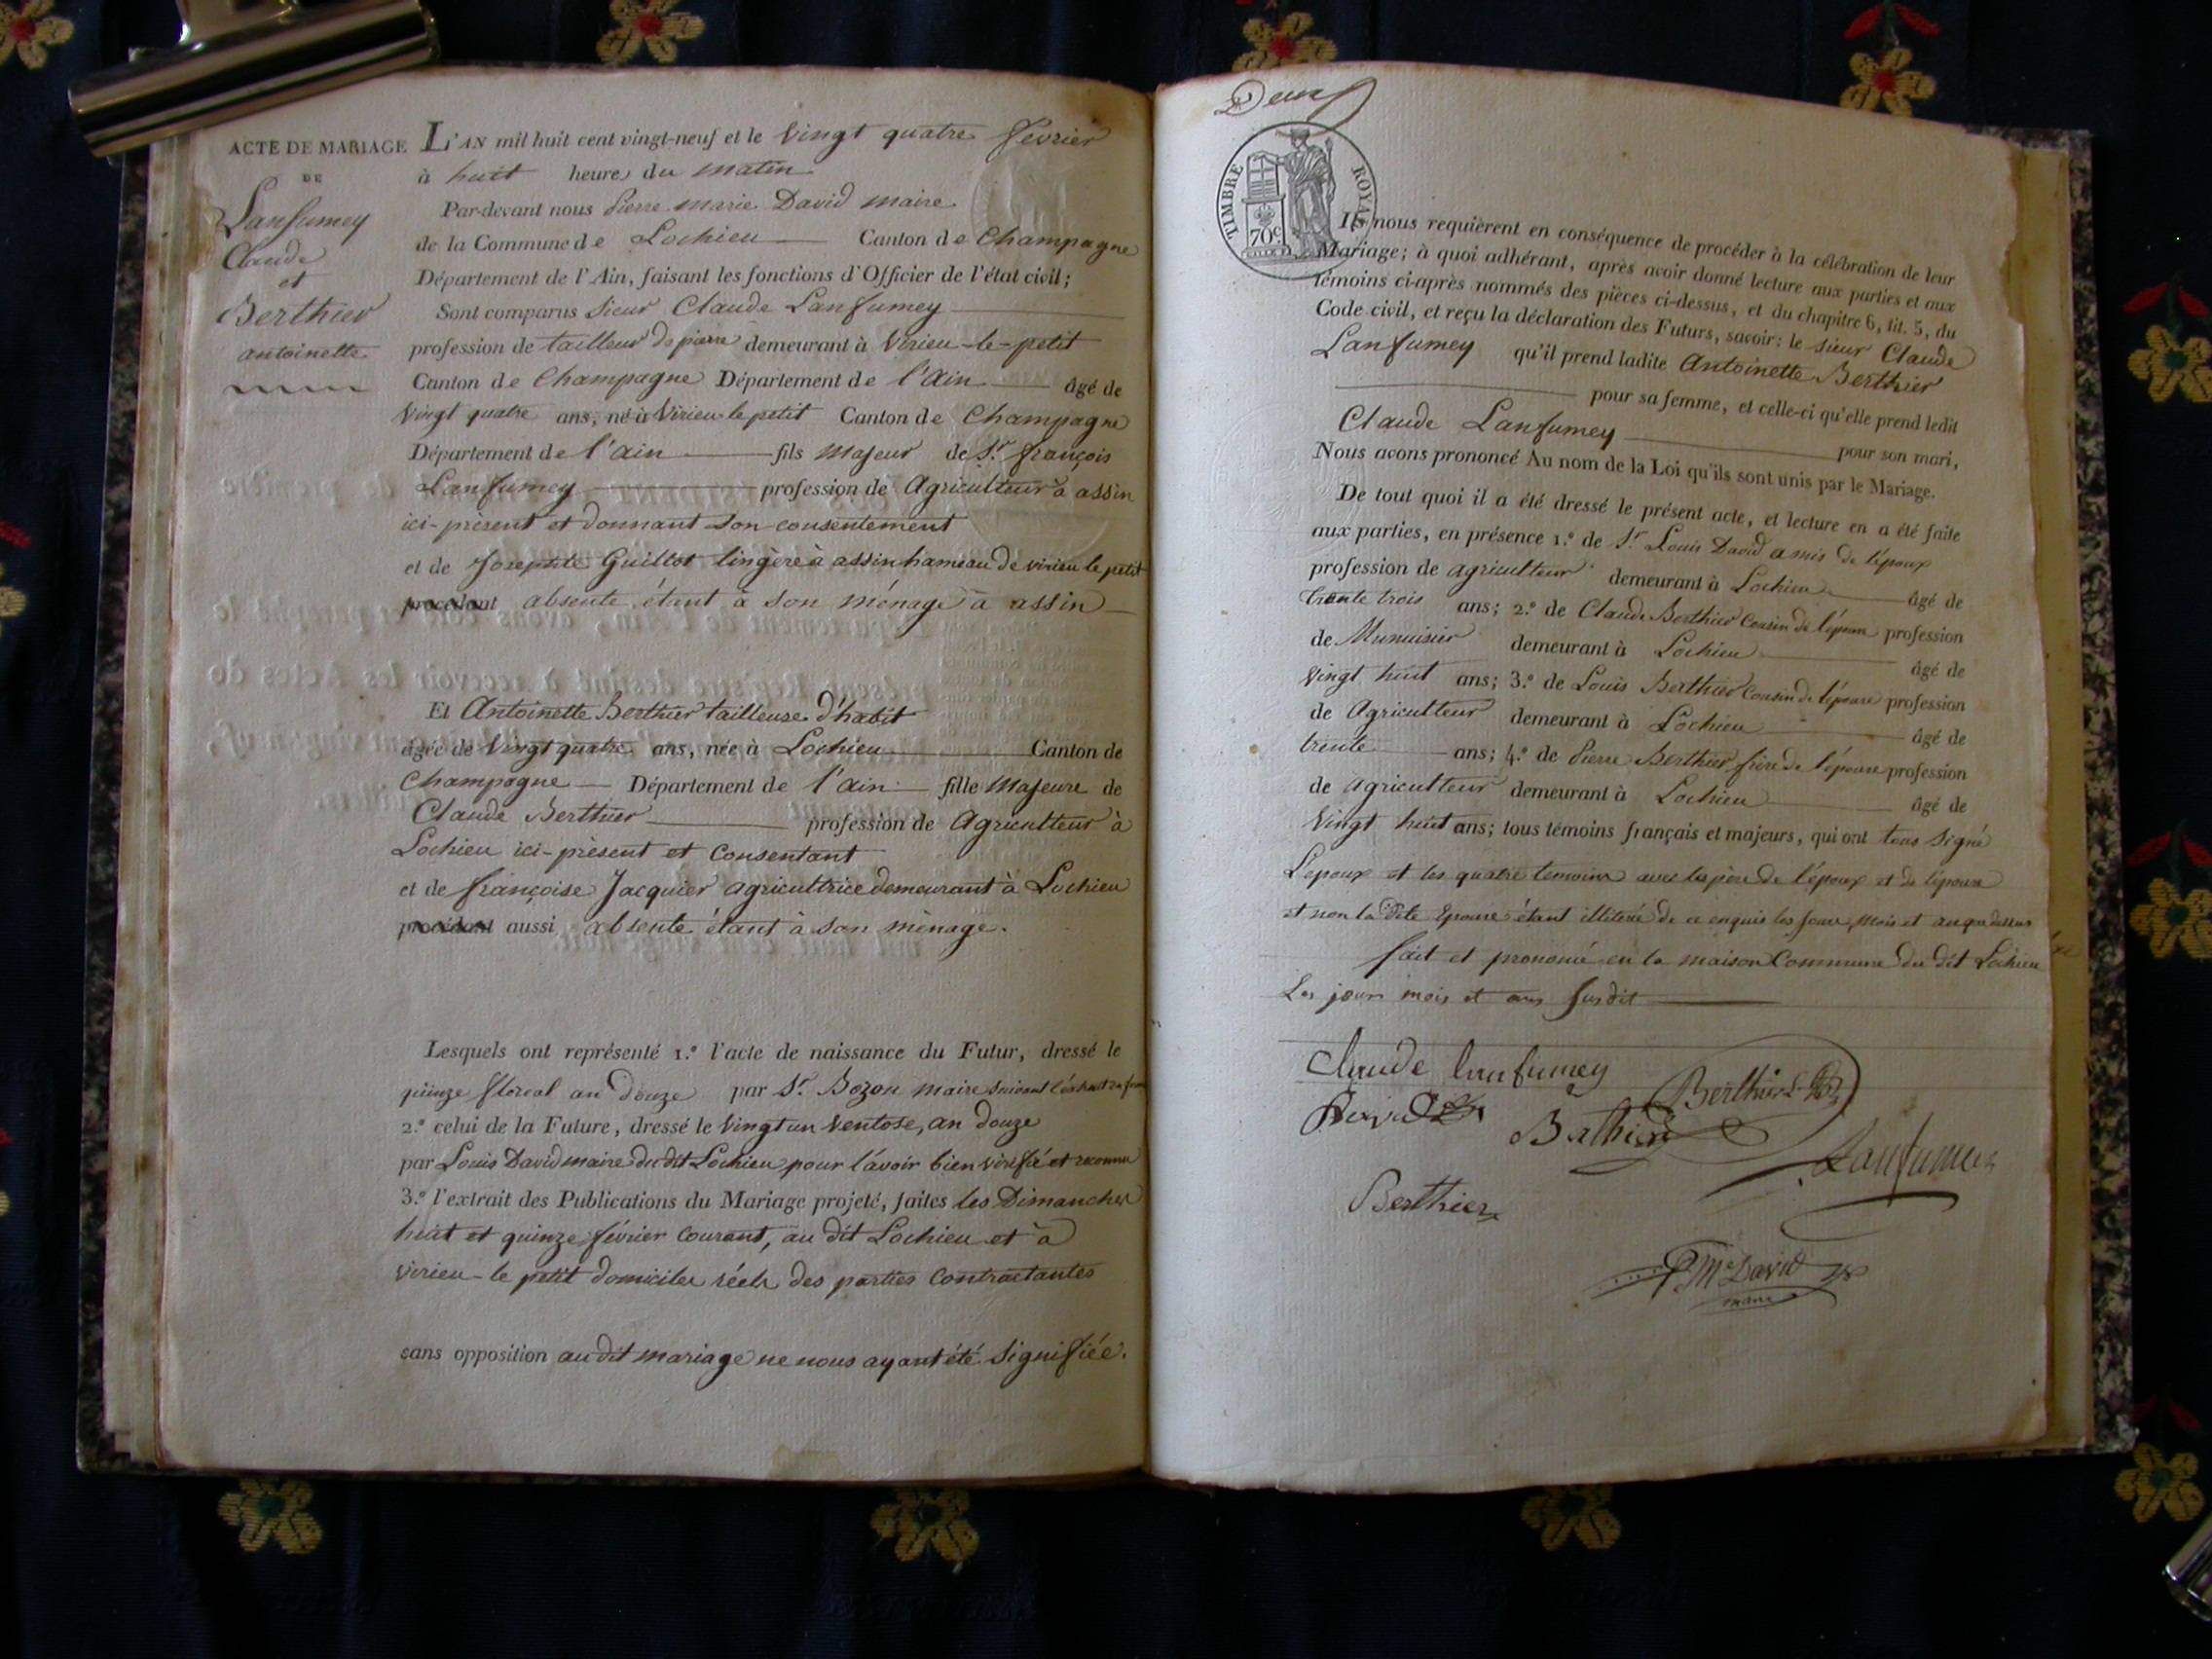 ACTE DE MARIAGE
DE
Lanfumey
Claude
et
Berthier
antoinette
L'AN mil huit cent vingt-neuf et le vingt quatre février
à huit heures du matin
Par-devant nous Pierre marie David maire
de la Commune de Lochieu Canton de Champagne
Département de l'Ain, faisant les fonctions d'Officier de l'état civil;
Sont comparus Sieur Claude Lanfumey
profession de tailleur de pierre demeurant à Virieu-le-petit
Canton de Champagne Département de l'Ain âgé de
Vingt quatre ans, né à Virieu le petit Canton de Champagne
Département de l'ain fils Majeur de Sr. françois
Lanfumey profession de Agriculteur à assin
ici-présent et donnant son consentement
et de Josephte Guillot lingère à assin hameau de virieu le petit
procédant absente, étant à son ménage à assin
Et Antoinette Berthier tailleuse d'habit
âgée de Vingt quatre ans, née à Lochieu Canton de
Champagne Département de l'ain fille Majeure de
Claude Berthier profession de Agriculteur à
Lochieu ici-présent et Consentant
et de françoise Jacquier agricultrice demeurant à Lochieu
procédant aussi absente étant à son ménage.
Lesquels ont représenté 1.° l'acte de naissance du Futur, dressé le
quinze floreal an douze par Sr. Bozon maire suivant l'extrait en forme
2.° celui de la Future, dressé le Vingt un Ventose, an douze
par Louis David maire du dit Lochieu pour l'avoir bien vérifié et reconnu
3.° l'extrait des Publications du Mariage projeté, faites les Dimanches
huit et quinze février Courant, au dit Lochieu et à
Virieu-le petit domiciles réels des parties Contractantes
sans opposition au dit mariage ne nous ayant été Signifiée.
Deux
TIMBRE ROYAL
70c
Ils nous requièrent en conséquence de procéder à la célébration de leur
Mariage; à quoi adhérant, après avoir donné lecture aux parties et aux
témoins ci-après nommés des pièces ci-dessus, et du chapitre 6, tit. 5, du
Code civil, et reçu la déclaration des Futurs, savoir: le sieur Claude
Lanfumey qu'il prend ladite Antoinette Berthier
pour sa femme, et celle-ci qu'elle prend ledit
Claude Lanfumey pour son mari,
Nous avons prononcé Au nom de la Loi qu'ils sont unis par le Mariage.
De tout quoi il a été dressé le présent acte, et lecture en a été faite
aux parties, en présence 1.° de Sr Louis David amis de l'époux
profession de agriculteur demeurant à Lochieu âgé de
trente trois ans; 2.° de Claude Berthier Cousin de l'épouse profession
de Munuisier demeurant à Lochieu âgé de
vingt huit ans; 3.° de Louis Berthier Cousin de l'épouse profession
de Agriculteur demeurant à Lochieu âgé de
trente ans; 4.° de Pierre Berthier frère de l'épouse profession
de agriculteur demeurant à Lochieu âgé de
Vingt huit ans; tous témoins français et majeurs, qui ont tous Signé
L'époux et les quatre temoins avec les père de l'époux et de l'épouse
et non la dite Epouse étant illitérée de ce enquis les jour, mois et an que dessus
fait et prononcé en la maison Commune du dit Lochieu
Les jours mois et ans susdit
Claude lanfumey
Berthier L.
David
Berthier
Lanfumey
Berthier
P. M. David
maire